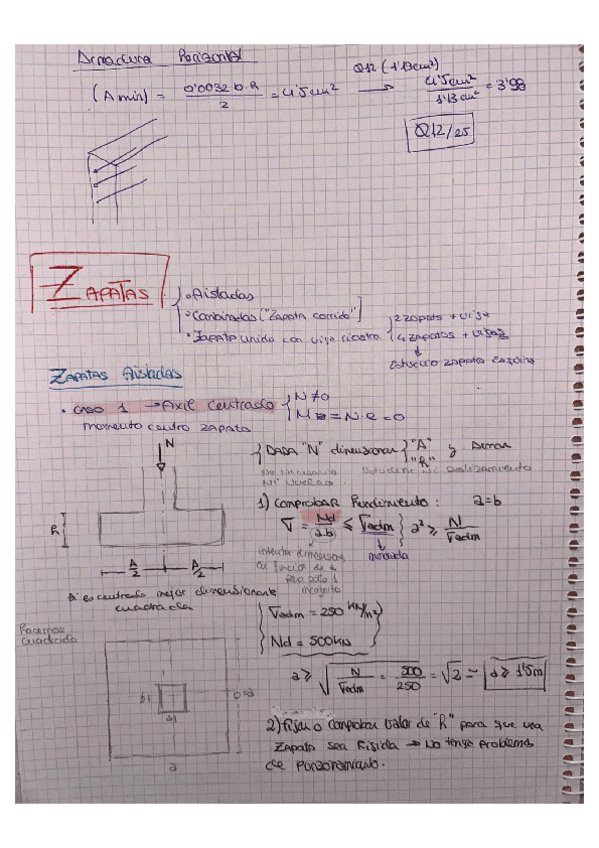 Armadura Horizontal
(A min) = 0'0032 b·h / 2 = 4'5 cm² → Ø12 (1'13cm²) 4'5cm² / 1'13cm² = 3'98
Ø12/25
ZAPATAS
• Aisladas
• Combinadas ["Zapata corrida"]
• Zapata unida con viga riostra
2 zapatas + viga
4 zapatas + vigas
Zapatas Aisladas
• caso 1 → Axil centrado
N ≠ 0
M = N·e = 0
momento centro zapata
N
DADA "N" dimensionar "A" y Armar
"h"
h
A/2
A/2
1) Comprobar Hundimiento: a=b
σ = Nd / a·b ≤ σadm
a² ≥ N / σadm
incognita
A es centrado mejor dimensionarle
cuadrada
Hacemos
cuadrada
σadm = 250 KN/m²
Nd = 500KN
a ≥ √ N / σadm = 500 / 250 = √2 = a ≥ 1'5m
b1
a1
b=a
a
2) fijar o comprobar valor de "h" para que una
zapata sea rigida → No tenga problemas
de punzonamiento.